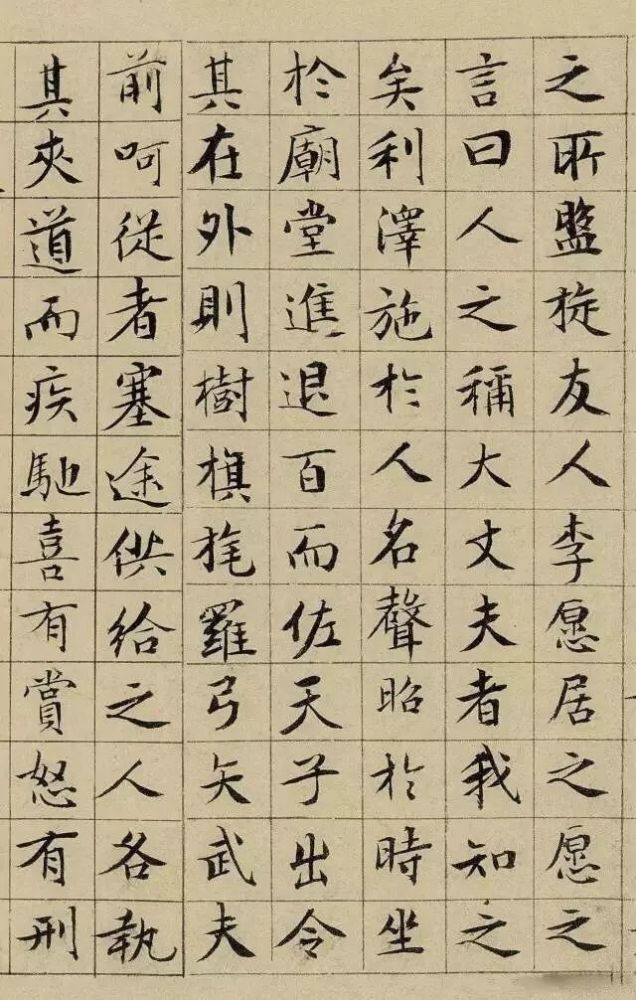 之所盤旋友人李愿居之愿之
言曰人之稱大丈夫者我知之
矣利澤施於人名聲昭於時坐
於廟堂進退百而佐天子出令
其在外則樹旗旄羅弓矢武夫
前呵從者塞途供給之人各執
其夾道而疾馳喜有賞怒有刑